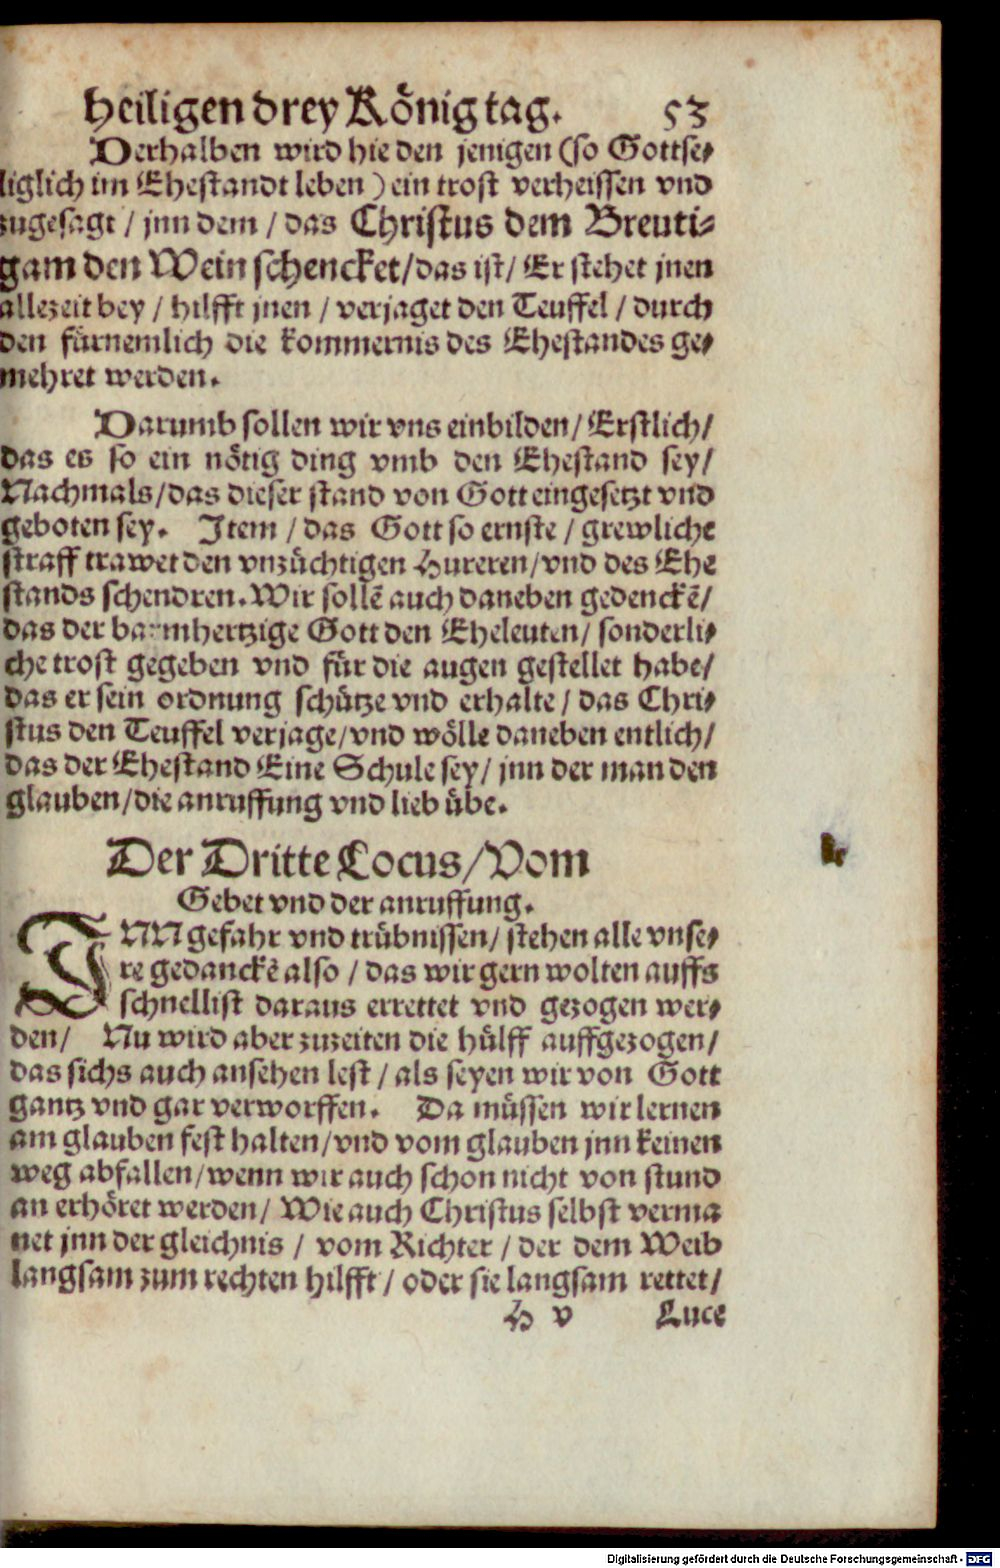 heiligen drey König tag. 53
Derhalben wird hie den jenigen (so Gottse⸗
liglich im Ehestandt leben) ein trost verheissen vnd
zugesagt / jnn dem / das Christus dem Breuti⸗
gam den Wein schencket/das ist/ Er stehet jnen
allezeit bey / hilfft jnen / verjaget den Teuffel / durch
den fürnemlich die kommernis des Ehestandes ge⸗
mehret werden.
Darumb sollen wir vns einbilden/ Erstlich/
das es so ein nötig ding vmb den Ehestand sey/
Nachmals/das dieser stand von Gott eingesetzt vnd
geboten sey. Item / das Gott so ernste / grewliche
straff trawet den vnzüchtigen Hureren/vnd des Ehe
stands schendren. Wir sollē auch daneben gedenckē/
das der barmhertzige Gott den Eheleuten/ sonderli⸗
che trost gegeben vnd für die augen gestellet habe/
das er sein ordnung schütze vnd erhalte / das Chri⸗
stus den Teuffel verjage/vnd wölle daneben entlich/
das der Ehestand Eine Schule sey/ jnn der man den
glauben/die anruffung vnd lieb übe.
Der Dritte Locus/Vom
Gebet vnd der anruffung.
INN gefahr vnd trübnissen/ stehen alle vnse⸗
re gedanckē also / das wir gern wolten auffs
schnellist daraus errettet vnd gezogen wer⸗
den/ Nu wird aber zuzeiten die hülff auffgezogen/
das sichs auch ansehen lest / als seyen wir von Gott
gantz vnd gar verworffen. Da müssen wir lernen
am glauben fest halten/vnd vom glauben jnn keinen
weg abfallen/wenn wir auch schon nicht von stund
an erhöret werden/ Wie auch Christus selbst verma
net jnn der gleichnis / vom Richter / der dem Weib
langsam zum rechten hilfft / oder sie langsam rettet/
H v Luce
Digitalisierung gefördert durch die Deutsche Forschungsgemeinschaft - DFG